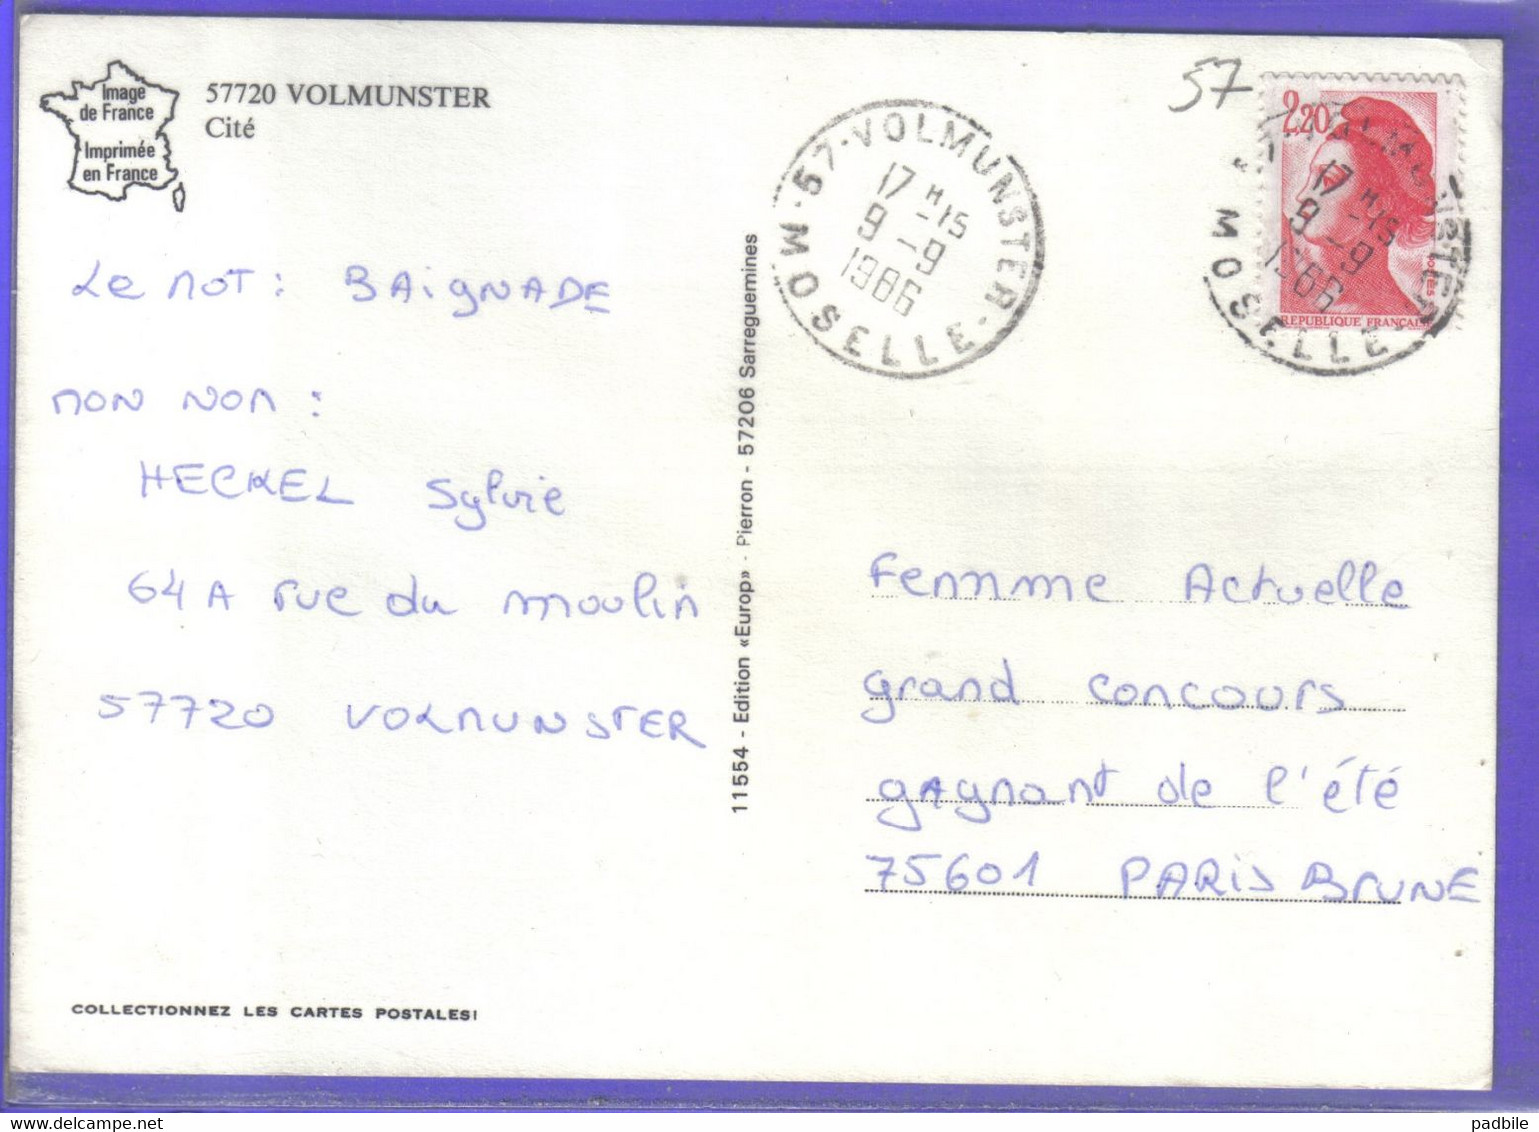 Image
de France
Imprimée
en France
57720 VOLMUNSTER
Cité
57
57-VOLMUNSTER-
17 H 15
9-9
1986
MOSELLE
2,20
17 H 15
9-9
1986
MOSELLE
REPUBLIQUE FRANÇAISE
Le MOT : BAiGNADE
MON NOM :
HECKEL Sylvie
64 A rue du moulin
57720 VOLMUNSTER
11554 - Edition «Europ» - Pierron - 57206 Sarreguemines
Femme Actuelle
grand concours
gagnant de l'été
75601 PARIS BRUNE
COLLECTIONNEZ LES CARTES POSTALES!
padbile